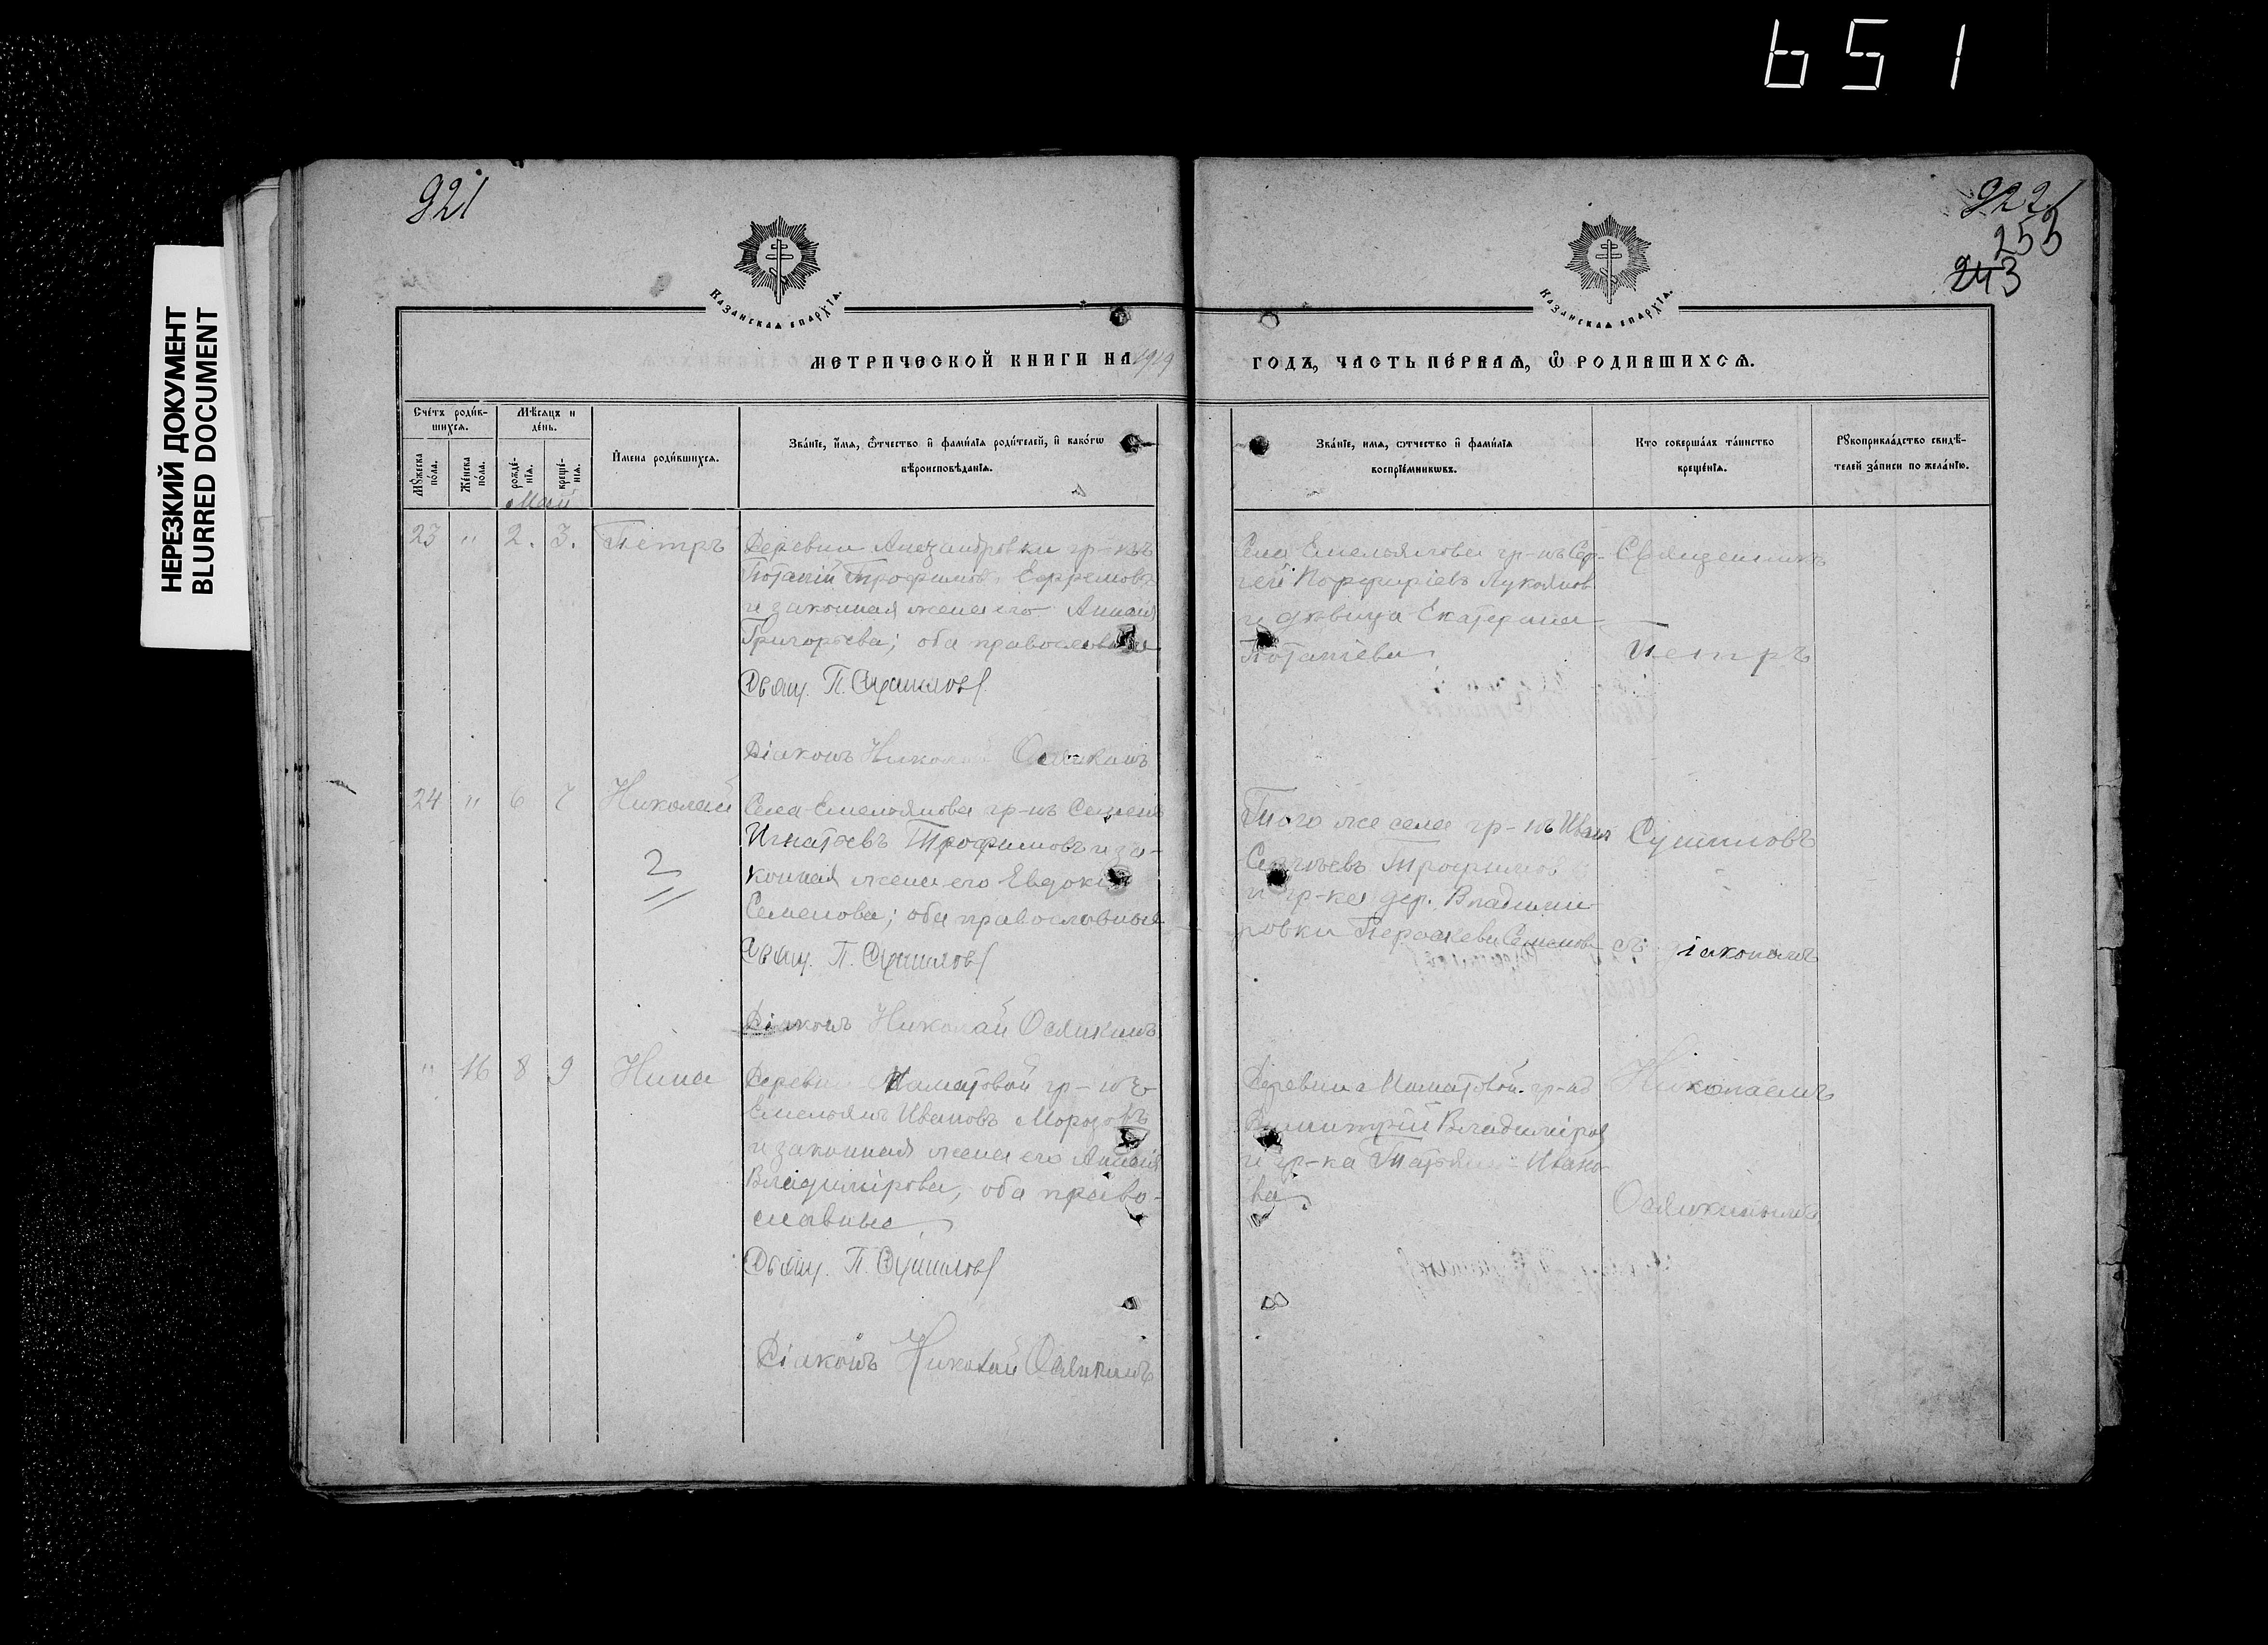 651
НЕРЕЗКИЙ ДОКУМЕНТ
BLURRED DOCUMENT
921
922
253
243
КАЗАНСКАѦ ЕПАРХІѦ.
КАЗАНСКАѦ ЕПАРХІѦ.
МЕТРИЧЕСКОЙ КНИГИ НА 1919
ГОДЪ, ЧАСТЬ ПЕ́РВАѦ, Ѽ РОДИВШИХСѦ.
Сче́тъ роди́в-
шихсѧ.
Мѣ́сѧцъ и
де́нь.
Мꙋ́жеска
по́ла.
Же́нска
по́ла.
рожде́-
нїѧ.
креще́-
нїѧ.
И҆мена роди́вшихсѧ.
Зва́нїе, и҆́мѧ, ѻ҆́тчество и҆ фами́лїѧ роди́телей, и҆ како́гѡ
вѣ̀роисповѣ́данїѧ.
Зва́нїе, имѧ, ѻтчество и҆ фами́лїѧ
воспрїе́мникѡвъ.
Кто соверша́лъ та́инство
креще́нїѧ.
Рꙋкоприкла́дство свидѣ́-
телей за́писи по жела́нїю.
Май
23 " 2. 3. Петръ
Деревни Александровки гр-нъ
Потапій Трофимовъ Ефремовъ
и законная жена его Анна
Григорьева; оба православные
Свящ. П. Сушиловъ
Діаконъ Николай Осянкинъ
Села Емельянова гр-нъ Сер-
гей Порфиріевъ Лукоянов
и девица Екатерина
Потапіева
Священникъ
Петръ
24 " 6 7 Николай
2
Села Емельянова гр-нъ Семенъ
Игнатьевъ Трофимовъ и за-
конная жена его Евдокія
Семенова; оба православные
Свящ. П. Сушиловъ
Діаконъ Николай Осянкинъ
Того же села гр-нъ Иванъ
Трофимов
и гр-ка дер. Владими-
ровки Параскева Семенов-
Сушиловъ
съ діакономъ
" 16 8 9 Нина
Деревни гр-нъ
Емельянъ Ивановъ Морозовъ
и законная жена его Анна
Владимірова, оба право-
славные
Свящ. П. Сушиловъ
Діаконъ Николай Осянкинъ
Деревни гр-нъ
Димитрій Владиміров
и гр-ка Татьяна Ивано-
ва
Николаемъ
Осянкинымъ